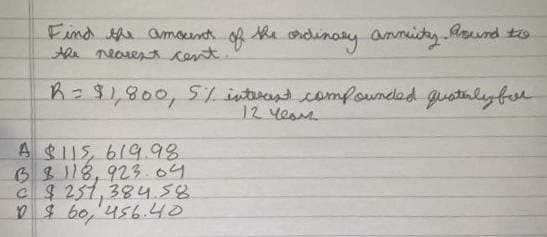 Find the amount of the ordinary annuity. Round to
the nearest cent.
R = $1,800, 5% interest compounded quaterly for
12 years
A $115,619.98
B $118,923.04
C $251,384.58
D $60,456.40